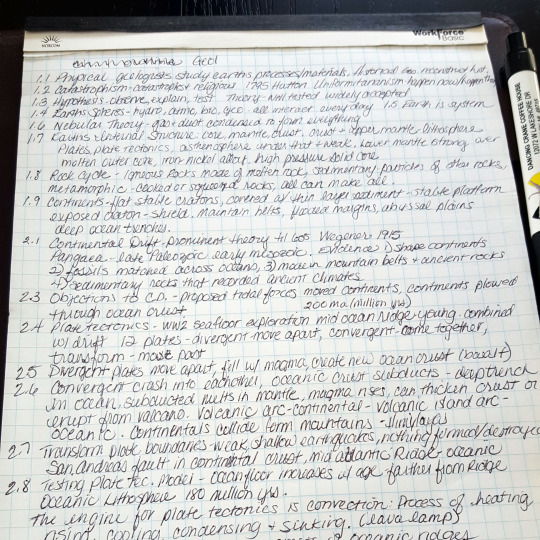 NORCOM
WorkForce
Basic
Geol
1.1 Physical geologists study earths processes/materials, Historical geo. reconstruct hist.
1.2 Catastrophism-catastrophes + religious 1795 Hutton Uniformitarianism happen now/happen then
1.3 Hypothesis-observe, explain, test Theory-well tested widely accepted
1.4 Earths spheres-hydro, atmo, bio, geo all interact every day 1.5 Earth is system
1.6 Nebular Theory-gas + dust condensed to form everything
1.7 Earths Internal Structure core, mantle, crust, crust + upper mantle-lithosphere
Plates, plate tectonics, asthenosphere under that + weak, lower mantle strong over
molten outer core, iron nickel alloy, high pressure solid core
1.8 Rock cycle - igneous rocks made of molten rock, sedimentary particles of other rocks,
metamorphic - cooked or squeezed rocks, all can make all.
1.9 Continents-flat stable cratons, covered w/ thin layer sediment-stable platform
exposed craton-shield. mountain belts, margins, abyssal plains
deep ocean trenches.
2.1 Continental Drift-prominent theory til 60s Wegener 1915
Pangaea-late Paleozoic early mesozoic. Evidence 1) shape continents
2) fossils matched across oceans, 3) made in mountain belts + ancient rocks
4) sedimentary rocks that recorded ancient climates
2.3 Objections to C.D.-proposed tidal forces moved continents, continents plowed
through ocean crust 200 ma (million yrs)
2.4 Plate tectonics-WW2 seafloor exploration mid ocean ridge-young. combined
w/ drift 12 plates-divergent move apart, convergent-come together,
transform-move past
2.5 Divergent plates move apart, fill w/ magma, create new ocean crust (basalt)
2.6 Convergent crash into eachother, oceanic crust subducts-deep trench
in ocean, subducted melts in mantle, magma rises, can thicken crust or
erupt from volcano. Volcanic arc-continental-volcanic island arc-
oceanic. Continentals collide form mountains-Himalayas
2.7 Transform plate boundaries-weak, shallow earthquakes, nothing formed/destroyed
San Andreas fault in continental crust, mid atlantic Ridge-oceanic
2.8 Testing Plate Tec. Model - ocean floor increases w/ age farther from Ridge
Oceanic Lithosphere 180 million yrs.
the engine for plate tectonics is convection: Process of heating
rising, cooling, condensing + sinking. (lava lamp)
oceanic ridges
DANCING CRANE COFFEE HOUSE
12072 W LAKESHORE DR